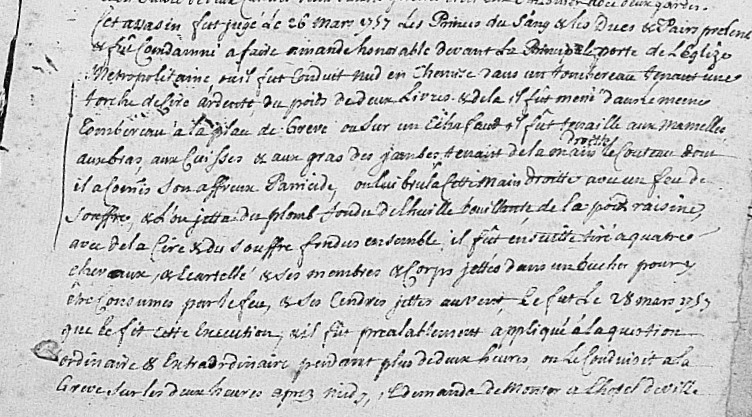 cet assasin fut jugé le 26 mars 1757 Les Princes du Sang & les Ducs & Pairs présens
& fut Condamné a faire amande honorable devant La Principale porte de L'Eglize
Metropolitaine ou il fut Conduit nud en Chemise dans un tombereau tenant une
torche de Cire ardente du poids de deux Livres & de la il fût mené dans le meme
Tombereau a la place de Greve ou sur un Echafaud il fût tenaillé aux Mamelles
aux bras, aux Cuisses & aux gras des jambes tenant de la main droitte le Couteau dont
il a Comis son affreux Paricide, on lui brula Cette Main droitte avec un feu de
Souffre, & L'on jetta du plomb fondu de L'huille bouillante de la poix raisine,
avec de la Cire & du Souffre fondus ensemble, il fût ensuitte tiré a quatre
chevaux, & Ecartellé & ses membres & Corps jettés dans un bucher pour y
être Consumés par le feu, & ses Cendres jettés au vent, Ce fut Le 28 mars 1757
que se fit cette Execution, & il fût prealablement appliqué a la question
ordinaire & Extraordinaire pendant plus de deux heures, on Le Conduisit a la
Greve sur les deux heures aprez midy, il demanda de Monter a L'hotel de Ville